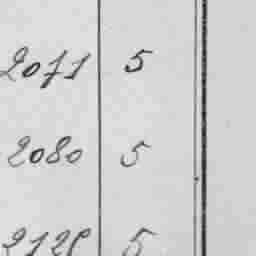 2071 5
2080 5
5